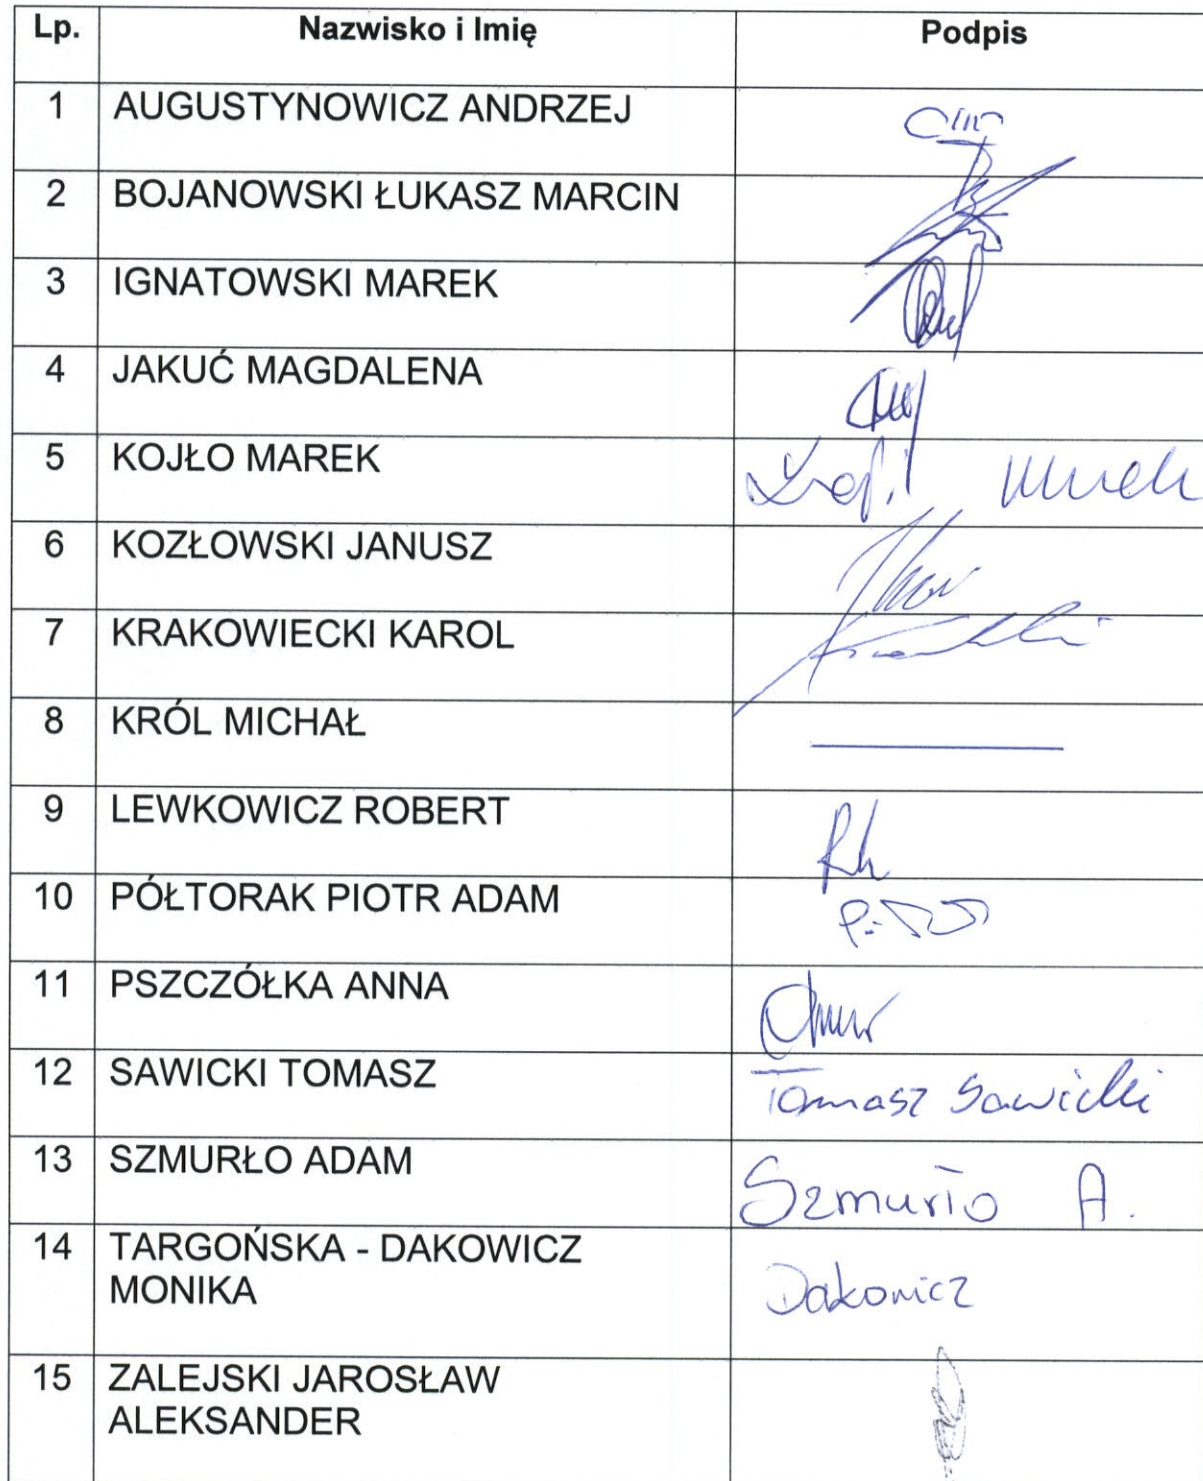 Lp. Nazwisko i Imię Podpis
1 AUGUSTYNOWICZ ANDRZEJ
2 BOJANOWSKI ŁUKASZ MARCIN
3 IGNATOWSKI MAREK
4 JAKUĆ MAGDALENA
5 KOJŁO MAREK
6 KOZŁOWSKI JANUSZ
7 KRAKOWIECKI KAROL
8 KRÓL MICHAŁ
9 LEWKOWICZ ROBERT
10 PÓŁTORAK PIOTR ADAM
11 PSZCZÓŁKA ANNA
12 SAWICKI TOMASZ Tomasz Sawicki
13 SZMURŁO ADAM Szmurło A.
14 TARGOŃSKA - DAKOWICZ
MONIKA Dakowicz
15 ZALEJSKI JAROSŁAW
ALEKSANDER